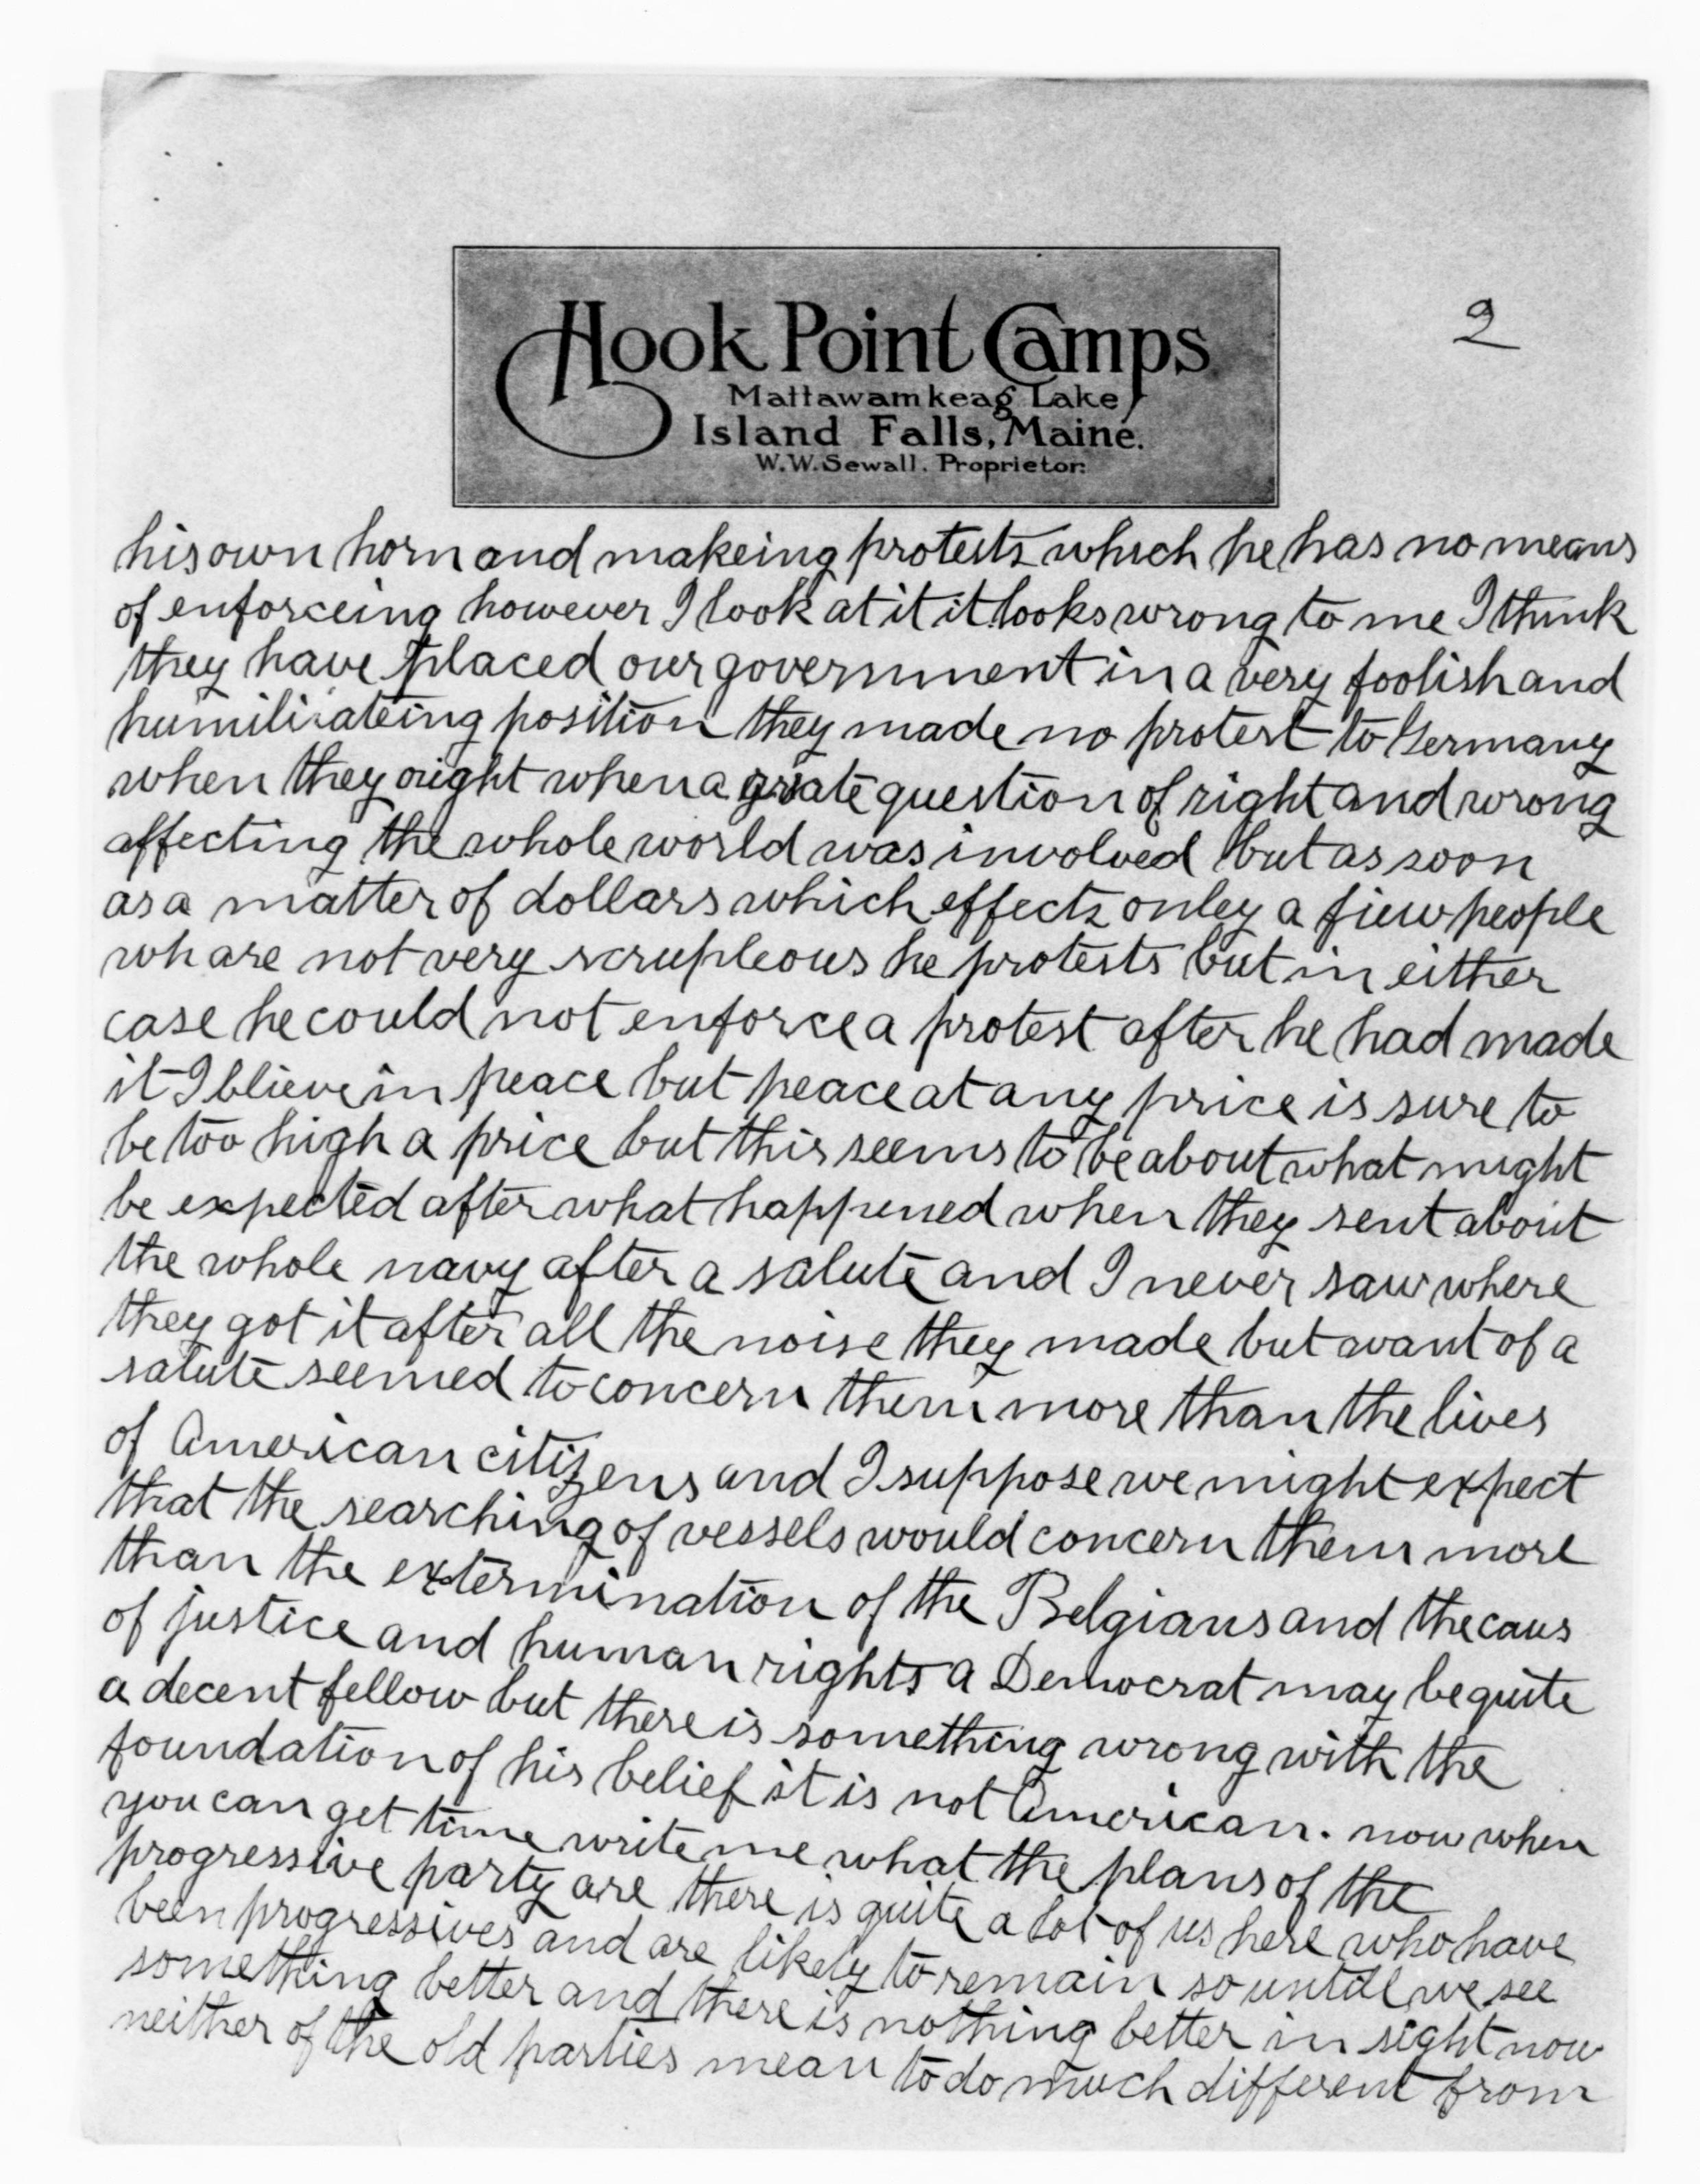 Hook Point Camps
2
Mattawamkeag Lake
Island Falls, Maine.
W.W. Sewall. Proprietor.
his own horn and makeing protests which he has no means
of enforceing however I look at it it looks wrong to me I think
they have placed our government in a very foolish and
humiliateing position they made no protest to Germany
when they ought when a grate question of right and wrong
affecting the whole world was involved but as soon
as a matter of dollars which effects onley a fiew people
wh are not very scrupleous he protests but in either
case he could not enforce a protest after he had made
it I blieve in peace but peace at any price is sure to
be too high a price but this seems to be about what might
be expected after what happened when they sent about
the whole navy after a salute and I never saw where
they got it after all the noise they made but want of a
salute seemed to concern them more than the lives
of American citizens and I suppose we might expect
that the searching of vessels would concern them more
than the extermination of the Belgians and the caus
of justice and human rights a Democrat may be quite
a decent fellow but there is something wrong with the
foundation of his belief it is not American. now when
you can get time write me what the plans of the
progressive party are there is quite a lot of us here who have
been progressives and are likely to remain so untill we see
something better and there is nothing better in sight now
neither of the old parties mean to do much different from